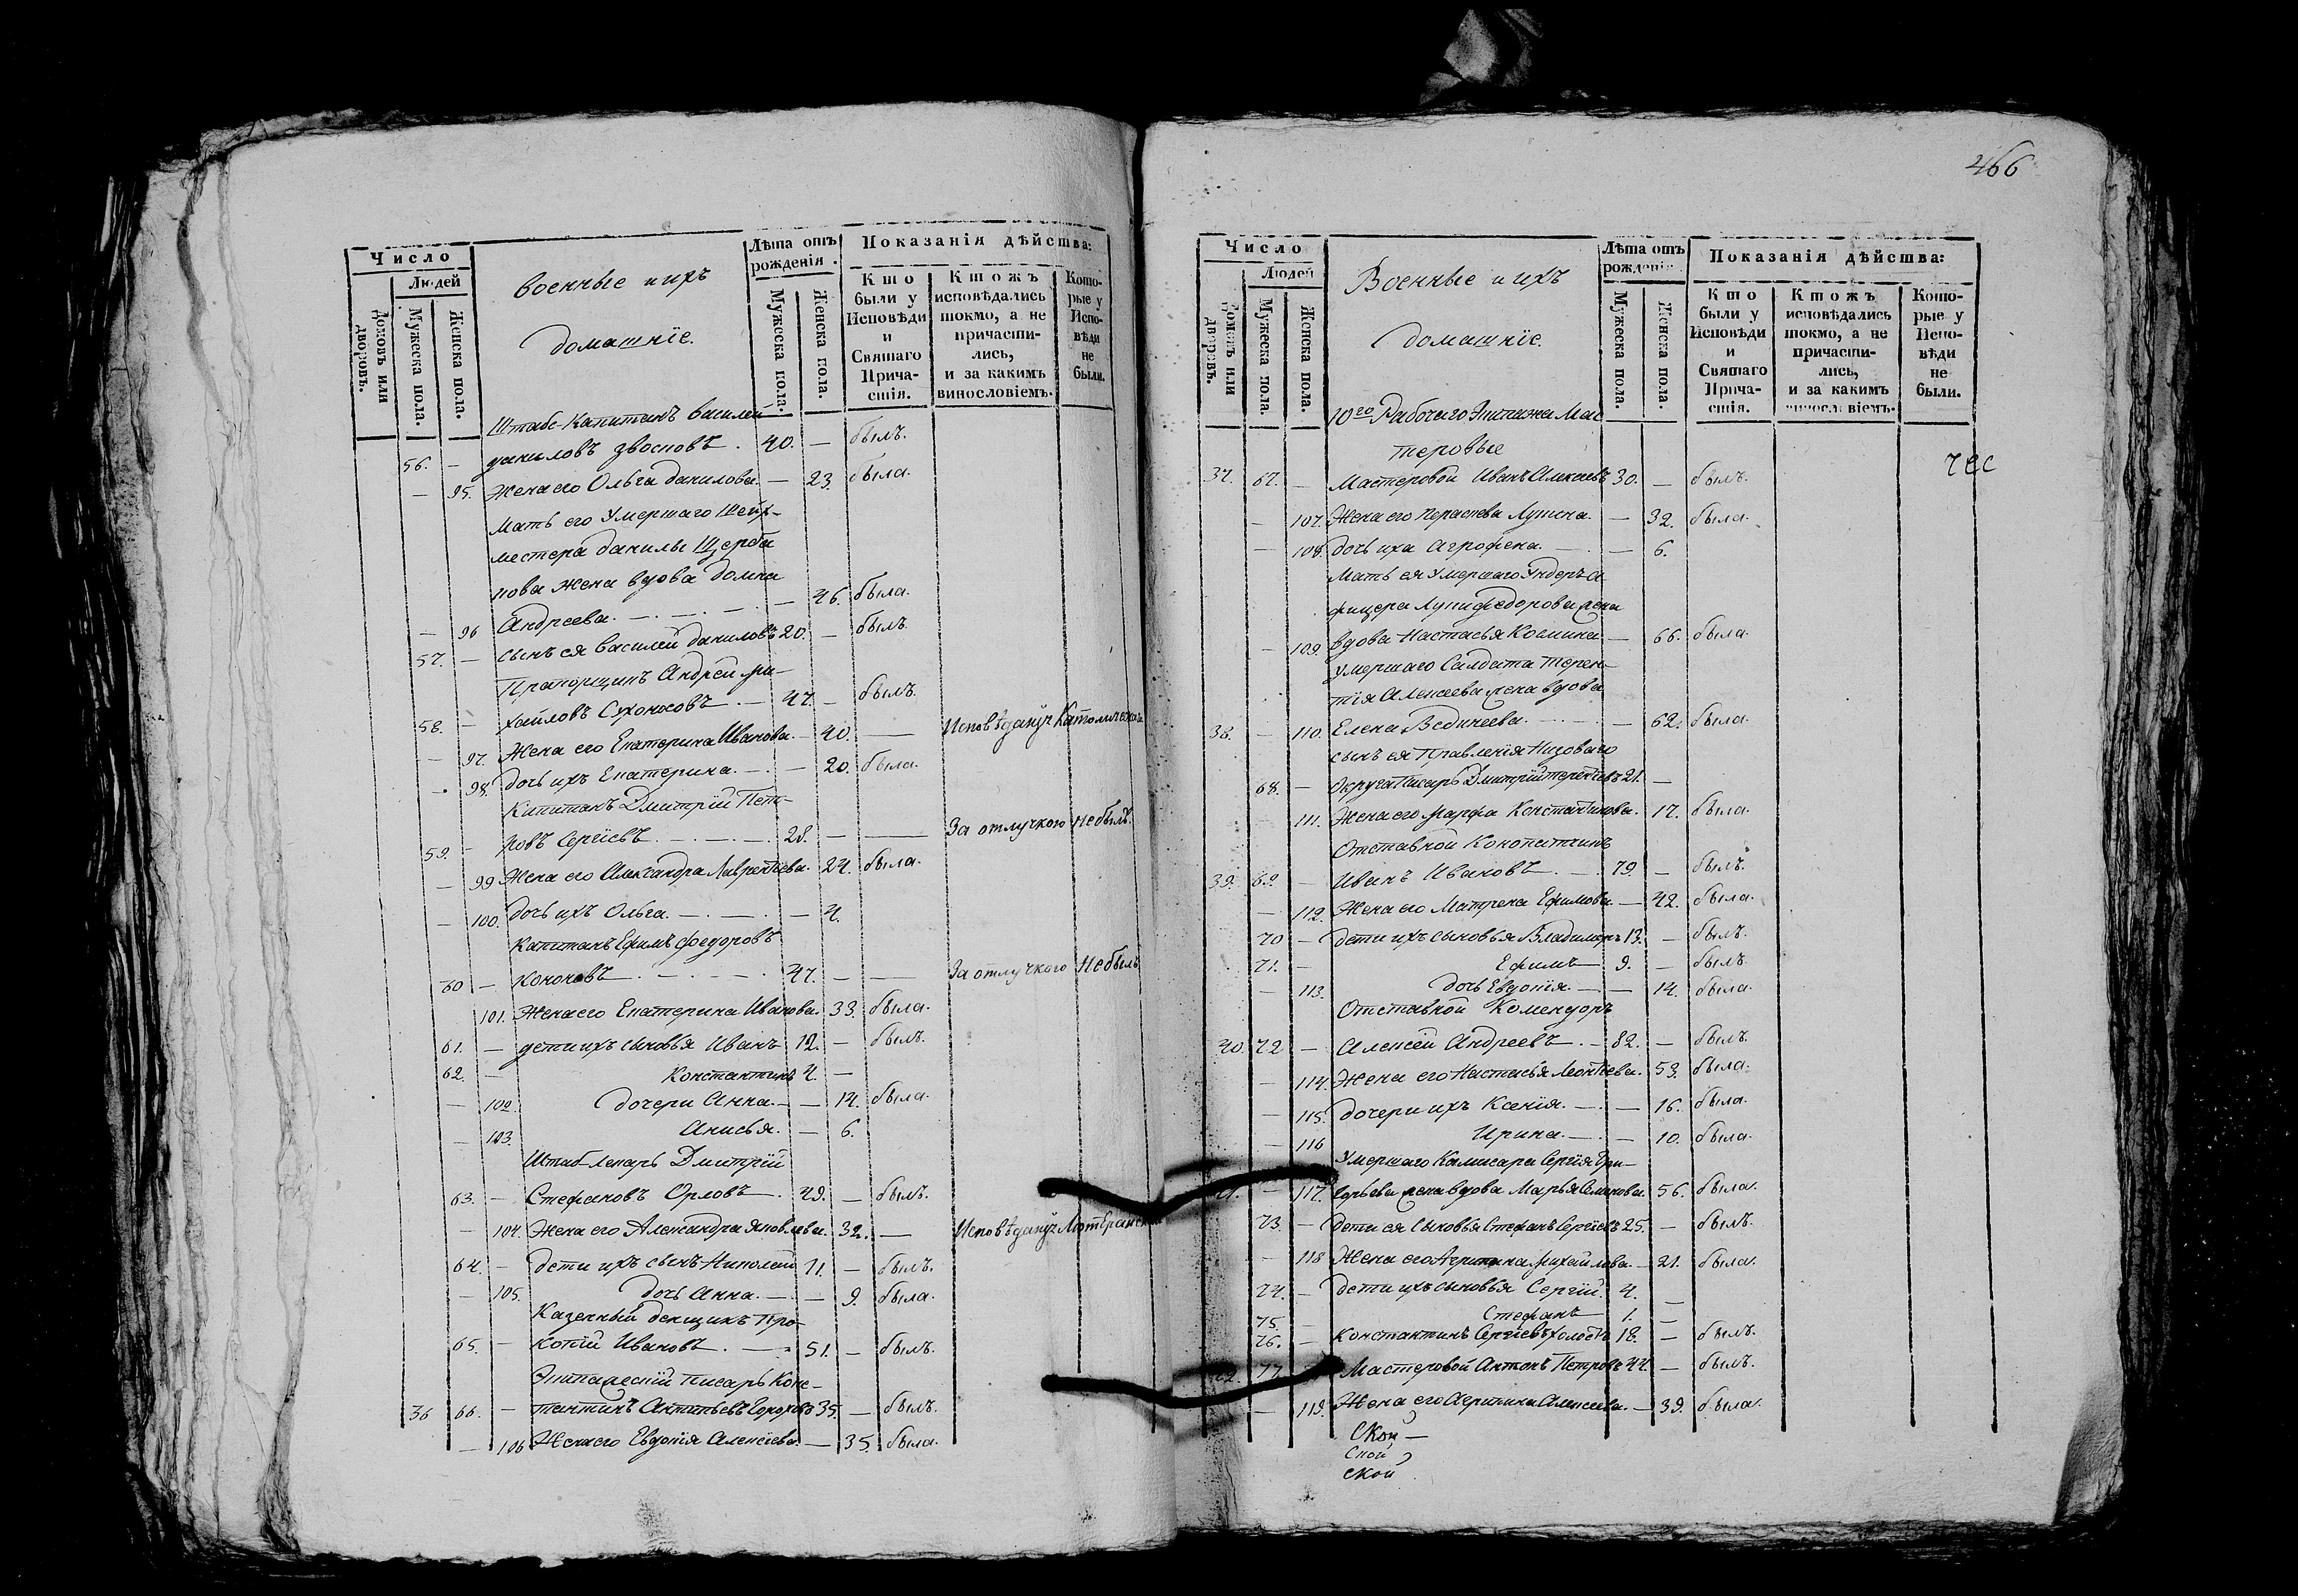 466
Число
Людей
домовъ или дворовъ.
Мужеска пола.
Женска пола.
военные и ихъ
домашніе.
Лѣта отъ рожденія.
Мужеска пола.
Женска пола.
Показанія дѣйства:
Кто были у Исповѣди и Святаго Прича-стія.
Ктожъ исповѣдались токмо, а не причасти-лись, и за какимъ винословіемъ.
Кото-рые у Испо-вѣди не были.
Штабс-Капитанъ василей
56. — даниловъ звосковъ. 40. — былъ.
— 95. Жена его Ольга данилова. — 23. была.
Мать его Умершаго Шейх-
местера данилы Щерба
кова жена вдова домна
— 96 Андреева. — 46. была.
57. — сынъ ея василей даниловъ 20. — былъ.
Прапорщикъ Андрей ми-
58. — хайловъ Сухоносовъ. — 47. — былъ.
— 97. Жена его Екатерина Иванова. — 40. — Исповѣданія Католическаго
— 98. дочь ихъ Екатерина. — 20. была.
Капитанъ Дмитрій Пет-
59. — ровъ Сергіевъ. 28. — — За отлучкою не былъ.
— 99 Жена его Александра Лаврентіева. 24. была.
— 100. дочь ихъ Ольга. — 4.
Капитанъ Ефимъ федоровъ
60 — Кононовъ 47. — — За отлучкою не былъ
101. Жена его Екатерина Иванова. 33. была.
61. — дети ихъ сыновья Иванъ 12. — былъ.
62. — Константинъ 4. —
— 102. дочери Анна. — 14. была.
— 103. Анисья. — 6.
Штаб-лекарь Дмитрій
63. — Стефановъ Орловъ. 49. — былъ.
— 104. Жена его Александра яковлева. 32. — Исповѣданія Лютеранск
64. — Дети ихъ сынъ Николай 11. — былъ.
— 105. дочь Анна. — 9. была.
Казенный денщикъ Про-
65. — копій Ивановъ. 51. — былъ.
Экипажескій писарь Конс-
36 66. — тантинъ Антипьевъ Гороховъ 35. — былъ.
— 106 Жена его Евдокія Алексіева. — 35. была.
Число
Людей
домовъ или дворовъ.
Мужеска пола.
Женска пола.
Военные и ихъ
домашніе.
Лѣта отъ рожденія.
Мужеска пола.
Женска пола.
Показанія дѣйства:
Кто были у Исповѣди и Святаго Прича-стія.
Ктожъ исповѣдались токмо, а не причасти-лись, и за какимъ винословіемъ.
Кото-рые у Испо-вѣди не были.
10го Рабочаго Экипажа Мас
теровые
37. 67. — Мастеровой Иванъ Алексеевъ 30. — былъ.
— 107. Жена его Параскева Лукина. — 32. была.
— 108. дочь ихъ Агрофена. — 6.
Мать ея Умершаго Ундеръ-о
фицера Луки федорова жена
— 109. вдова Настасья Космина. — 66. была.
Умершаго Салдата Терен-
тія Алексеева жена вдова
38. — 110. Елена Вединеева. — 62. была.
сынъ ея Правленія Низоваго
68. — Округа Писарь Дмитрій терентіевъ 21. —
111. Жена его марфа Константинова. 17. была.
Отставной Конопатчикъ
39. 69. — Иванъ Ивановъ. 79. — былъ.
— 112. Жена его Матрена Ефимова — 42. была.
70 — дети ихъ сыновья Владимиръ 13. — былъ.
71. — Ефимъ 9. — былъ.
— 113. дочь Евдокія. — 14. была.
Отставной Комендоръ
40. 72 — Алексей Андреевъ. — 82. — былъ.
— 114. Жена его Настасья леонтіева. 53. была.
— 115. дочери ихъ Ксенія. — 16. была.
— 116 Ирина. — 10. была.
Умершаго Камисара Сергія Гри-
— 117. горьева жена вдова Марья Семинова. 56. была.
73. — дети ея Сыновья Стефанъ Сергіевъ 25. — былъ.
— 118 Жена его михайлова. — 21. была.
74. — Дети ихъ сыновья Сергій. 4. —
75. — Стефанъ 1. —
76. — Константинъ Сергіевъ холостъ 18. — былъ.
77. Мастеровой Антонъ Петровъ 44. — былъ.
— 119. Жена его Алексеева. — 39. была.
Ской —
Ской
Ской